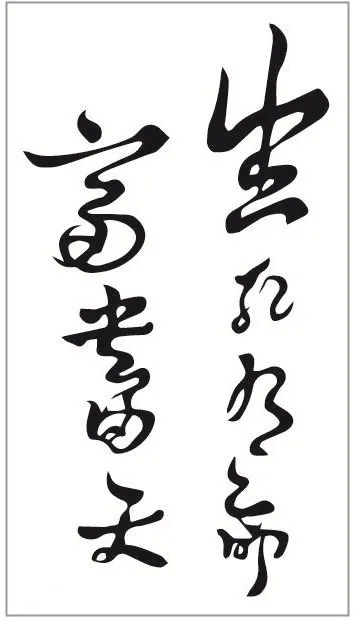 生死有命
富貴天